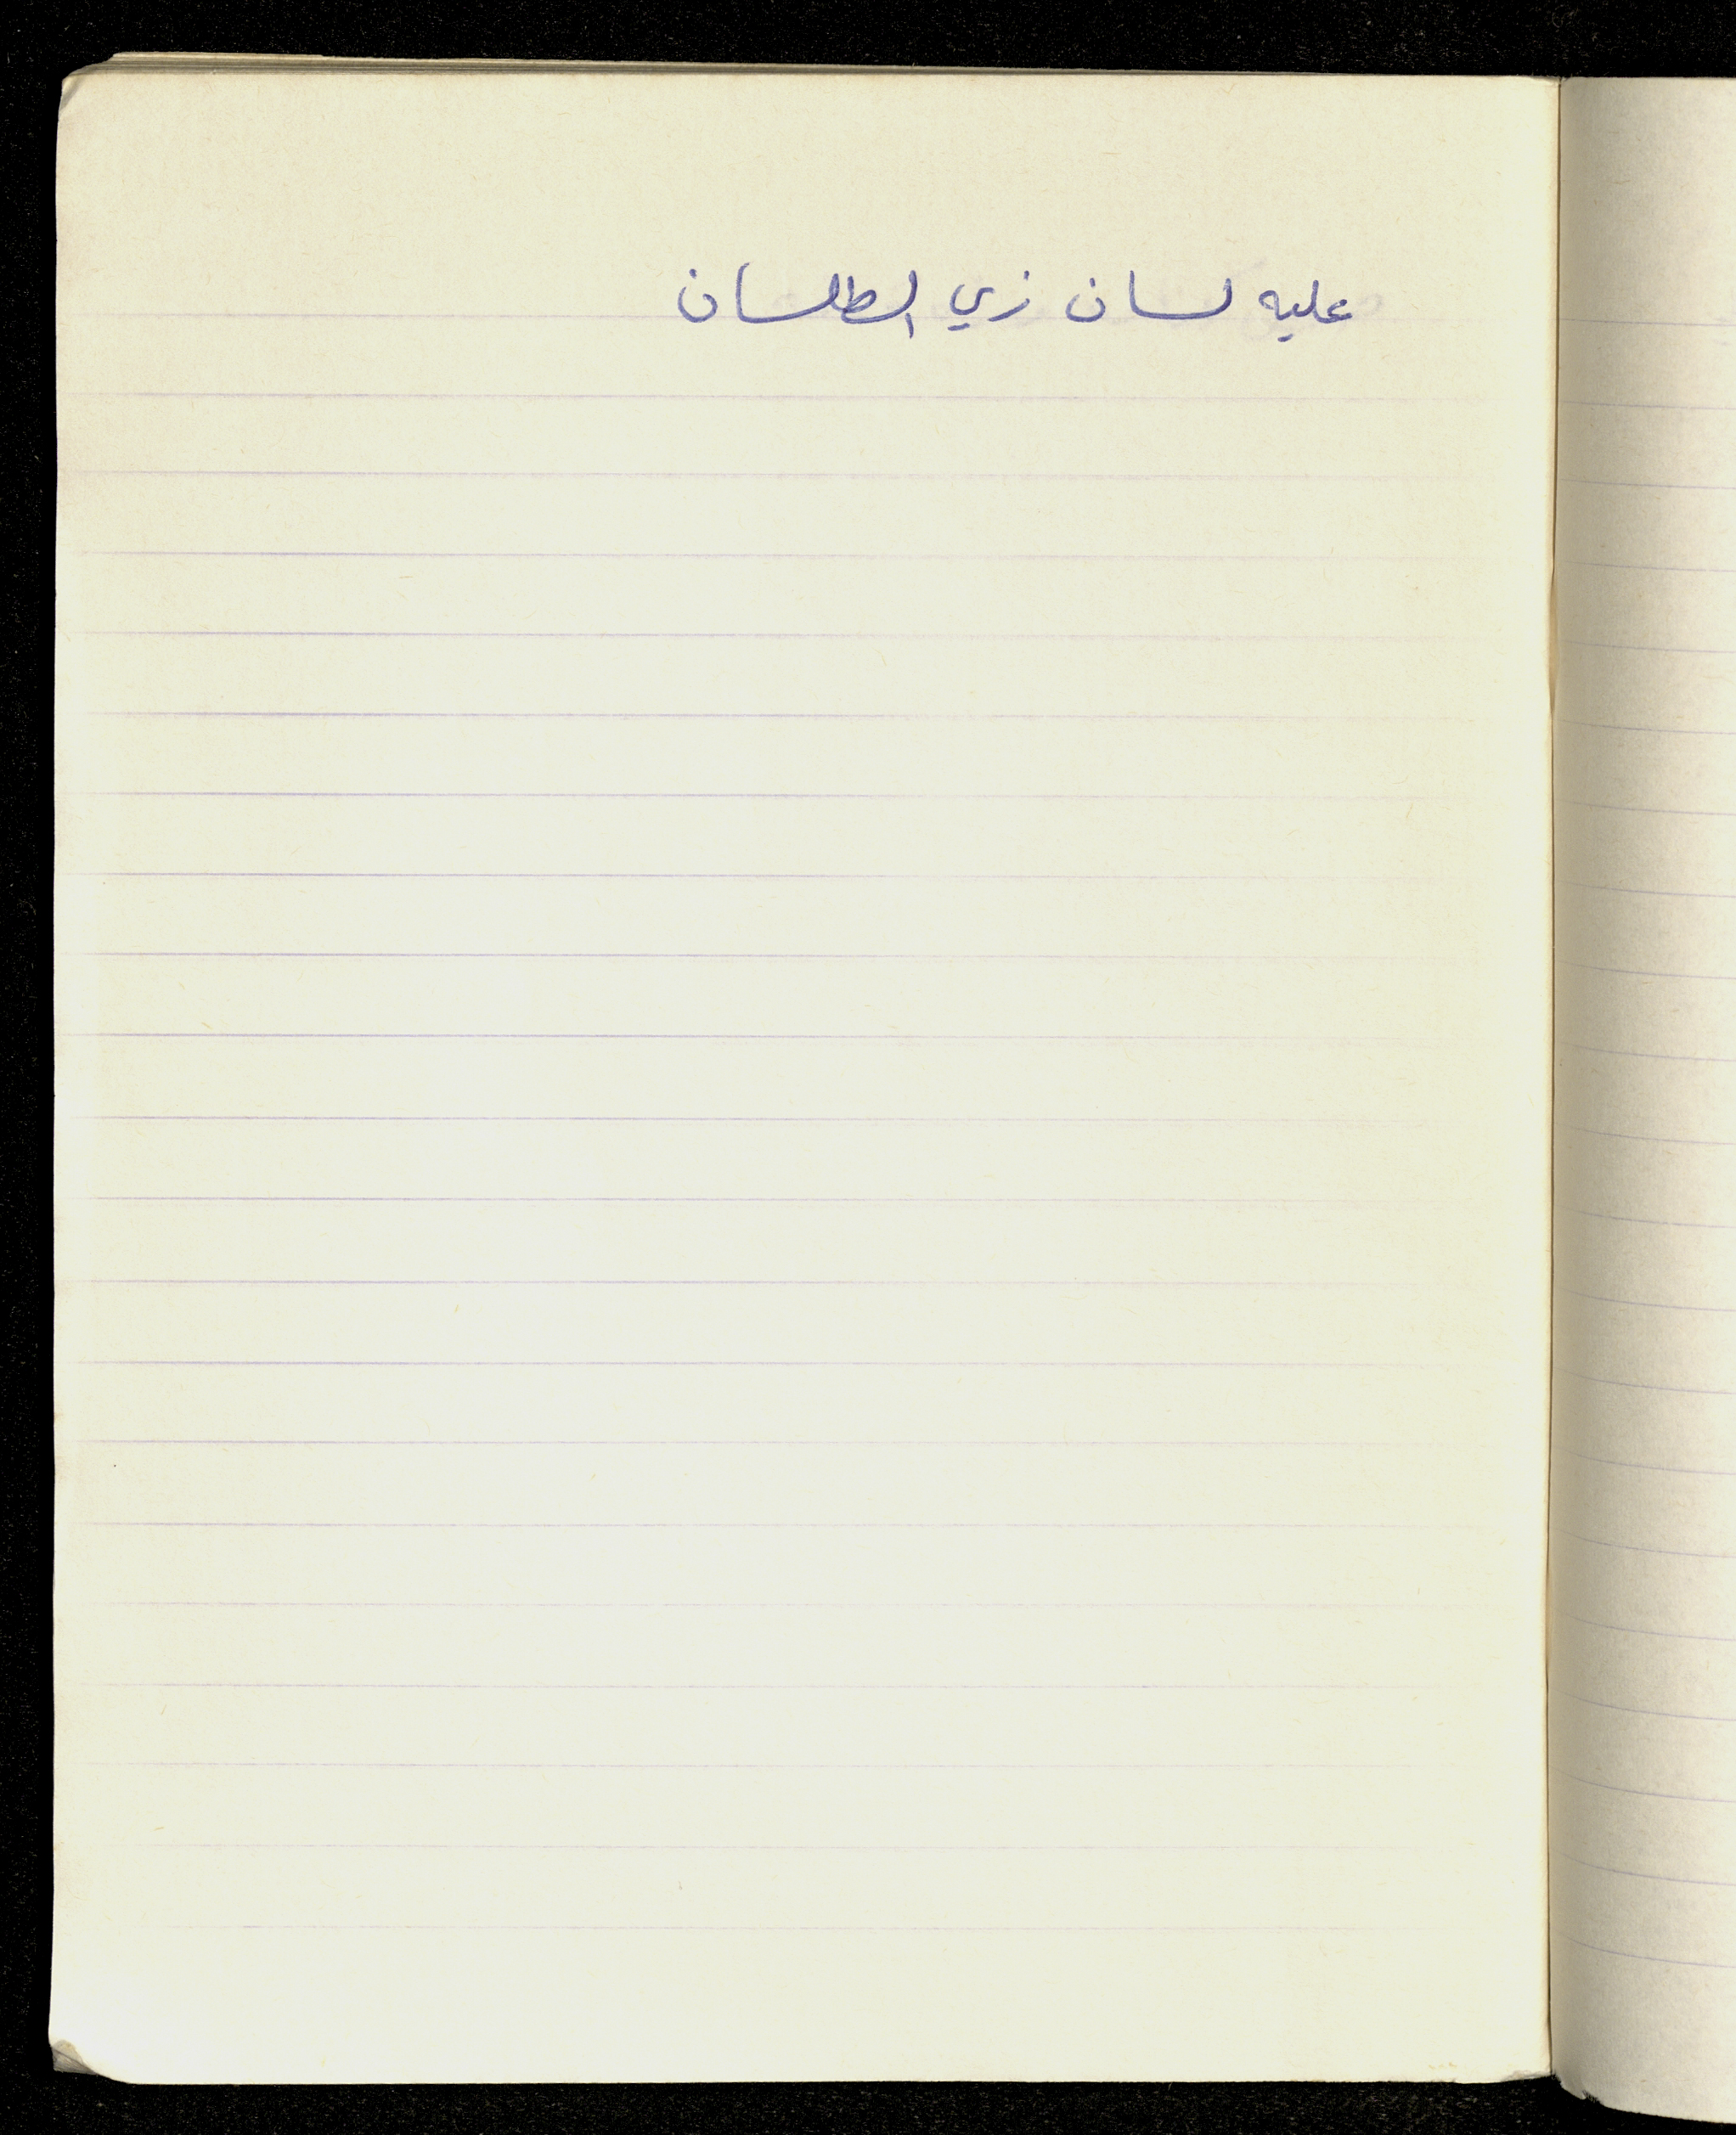 عليه لسان زي الطلسان